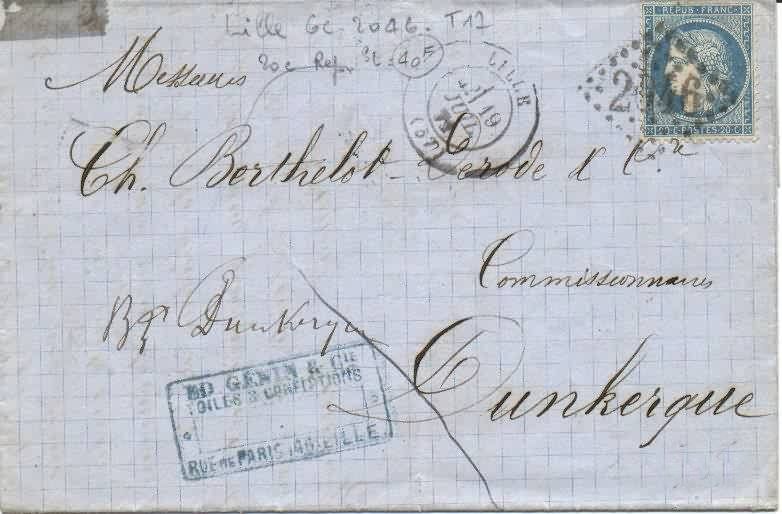 Lille Gc 2046. T17
20c Rep.
40F
REPUB. FRANC.
20 C. POSTES 20 C.
LILLE
19
JUIL.
(57)
Messieurs
Ch. Berthelot-Terode & Cie
Commissionnaires
Bf Dunkerque
Dunkerque
ED. GENIN & CIE
TOILES & CONFECTIONS
RUE DE PARIS LILLE